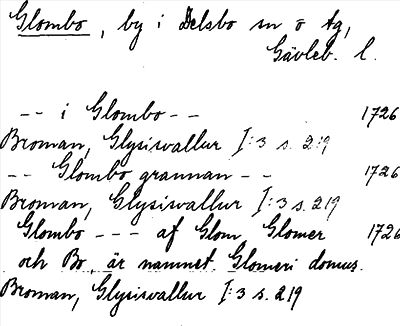 Glombo, by i Delsbo sn o tg,
Gävleb. l.
-- i Glombo -- 1726
Broman, Glysisvallur I:3 s. 219
-- Glombo grannan -- 1726
Broman, Glysisvallur I:3 s. 219
Glombo --- af Glom, Glomer 1726
och Bo, är namnet Glomeri domus.
Broman, Glysisvallur I:3 s. 219